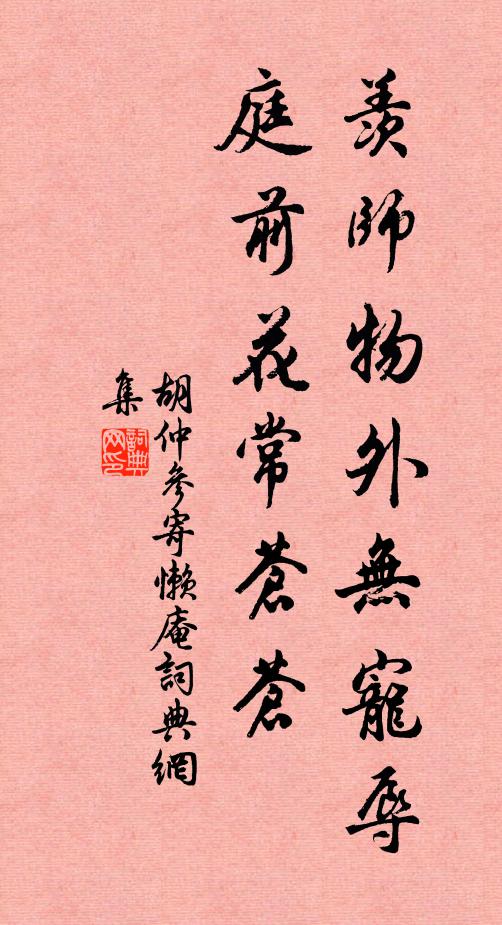 羨師物外無寵辱
庭前花常蒼蒼
胡仲參寄懶庵詞典網
集
詞典網印